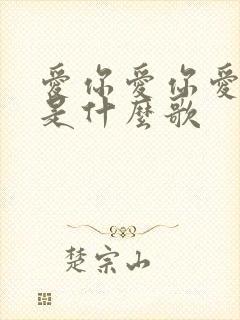 愛你愛你愛
是什麼歌
楚宗山